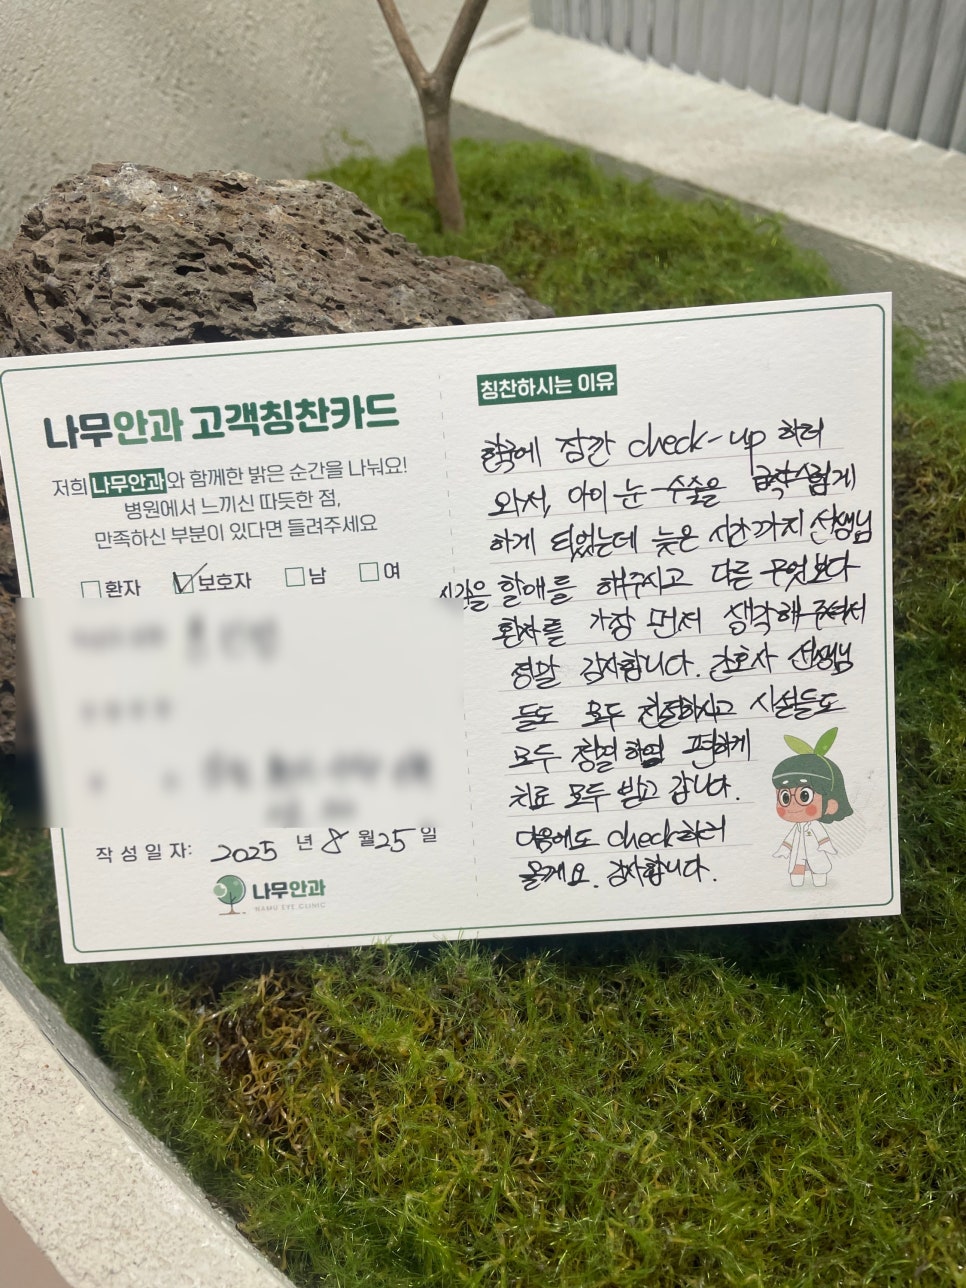 나무안과 고객칭찬카드
저희 나무안과와 함께한 밝은 순간을 나눠요!
병원에서 느끼신 따듯한 점,
만족하신 부분이 있다면 들려주세요
환자 보호자 남 여
작성일자: 2025 년 8 월 25 일
나무안과
NAMU EYE CLINIC
칭찬하시는 이유
한국에 잠깐 check-up 하러
와서, 아이 눈 수술을 급작스럽게
하게 되었는데 늦은 시간까지 선생님
시간을 할애를 해주시고 다른 무엇보다
환자를 가장 먼저 생각해 주셔서
정말 감사합니다. 간호사 선생님
들도 모두 친절하시고 시설들도
모두 정밀하며 편하게
치료 모두 받고 갑니다.
다음에도 check하러
올게요. 감사합니다.